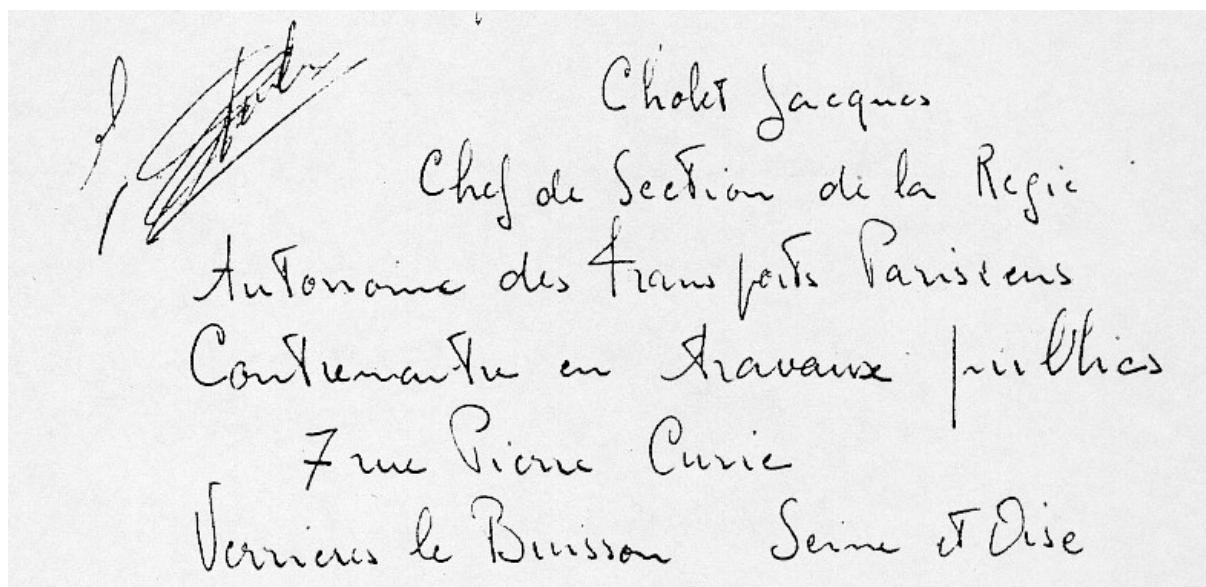 Cholet Jacques
Chef de Section de la Regie
Autonome des Transports Parisiens
Contremaitre en travaux publics
7 rue Pierre Curie
Verrieres le Buisson Seine et Oise